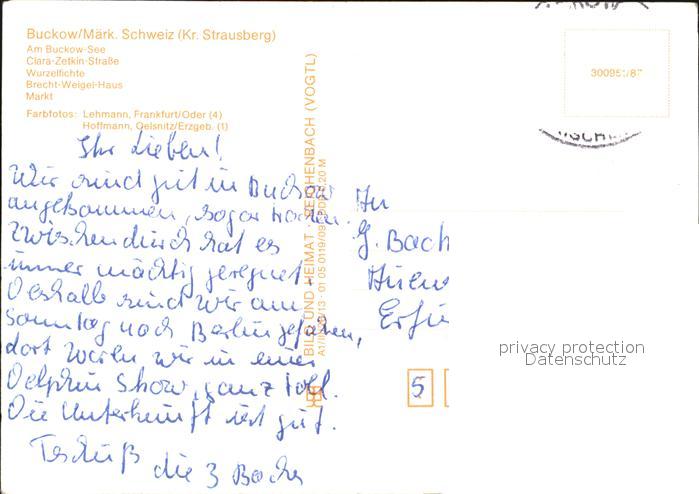 Buckow/Märk. Schweiz (Kr. Strausberg)
Am Buckow-See
Clara-Zetkin-Straße
Wurzelfichte
Brecht-Weigel-Haus
Markt
Farbfotos: Lehmann, Frankfurt/Oder (4)
Hoffmann, Oelsnitz/Erzgeb. (1)
300951/87
BILD UND HEIMAT · REICHENBACH (VOGTL)
Ihr Lieben!
Wir sind gut in Buckow
angekommen, sogar trocken.
Zwischendurch hat es
immer mächtig geregnet.
Deshalb sind wir am
Sonntag nach Berlin gefahren,
dort waren wir in einer
Delphin Show, ganz toll.
Die Unterkunft ist gut.
Tschüß
die 3 Bachs
An
G. Bach
Erfu
5
privacy protection
Datenschutz